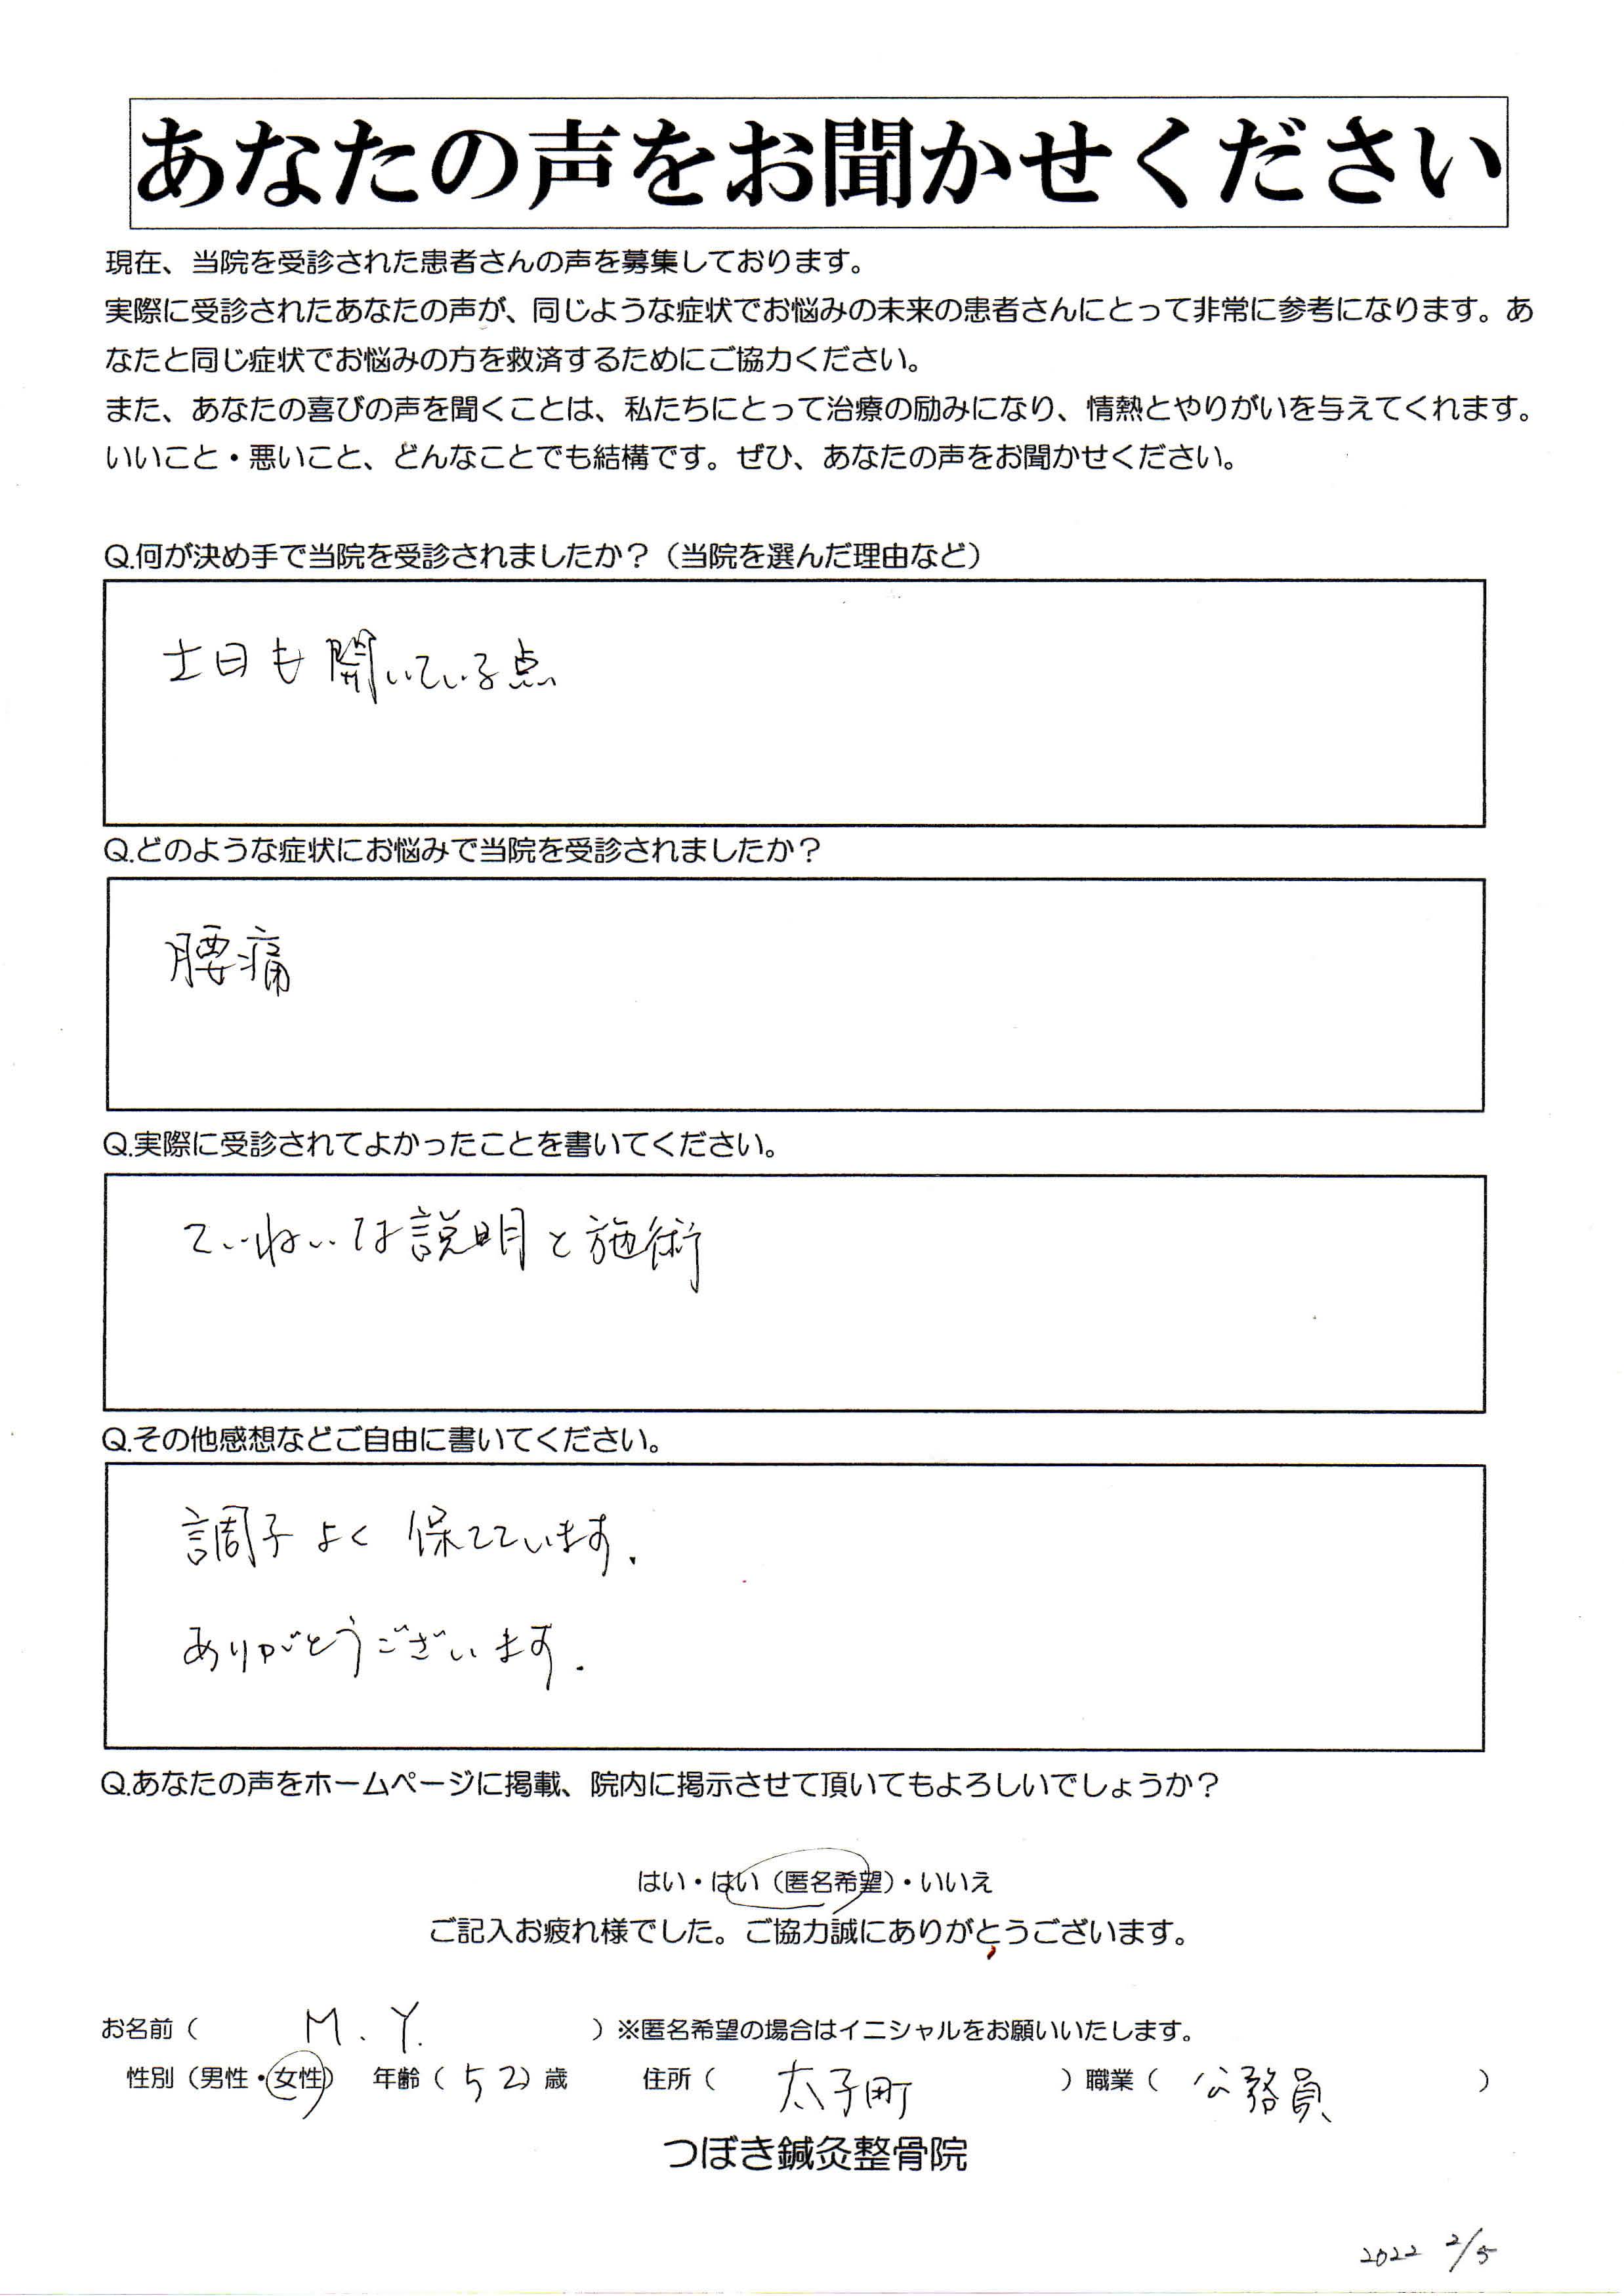 あなたの声をお聞かせください
現在、当院を受診された患者さんの声を募集しております。
実際に受診されたあなたの声が、同じような症状でお悩みの未来の患者さんにとって非常に参考になります。あ
なたと同じ症状でお悩みの方を救済するためにご協力ください。
また、あなたの喜びの声を聞くことは、私たちにとって治療の励みになり、情熱とやりがいを与えてくれます。
いいこと・悪いこと、どんなことでも結構です。ぜひ、あなたの声をお聞かせください。
Q.何が決め手で当院を受診されましたか？（当院を選んだ理由など）
土日も開いている点
Q.どのような症状にお悩みで当院を受診されましたか？
腰痛
Q.実際に受診されてよかったことを書いてください。
ていねいな説明と施術
Q.その他感想などご自由に書いてください。
調子よく保てています.
ありがとうございます.
Q.あなたの声をホームページに掲載、院内に掲示させて頂いてもよろしいでしょうか？
はい・はい（匿名希望）・いいえ
ご記入お疲れ様でした。ご協力誠にありがとうございます。
お名前（ M.Y. ）※匿名希望の場合はイニシャルをお願いいたします。
性別（男性・女性） 年齢（52）歳 住所（ 太子町 ）職業（ 公務員 ）
つぼき鍼灸整骨院
2022 2/5